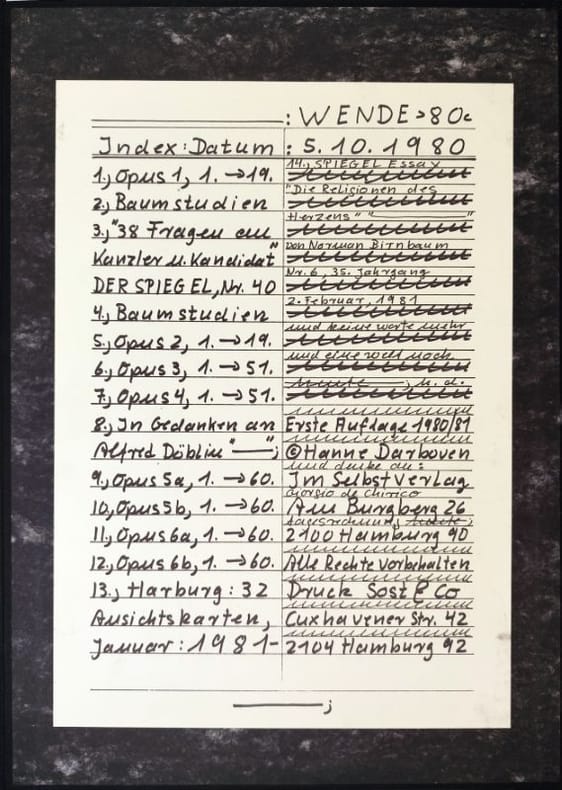 : WENDE >80<
Index: Datum : 5. 10. 1980
14., SPIEGEL Essay
1., Opus 1, 1. → 19.
"Die Religionen des
2., Baumstudien
Herzens" "———"
3., "38 Fragen an
von Norman Birnbaum
Kanzler u. Kandidat"
Nr. 6, 35. Jahrgang
DER SPIEGEL, Nr. 40
2. Februar, 1981
4., Baumstudien
und keine worte mehr
5., Opus 2, 1. → 19.
und eine welt noch
6., Opus 3, 1. → 51.
heute ———, u. d.
7., Opus 4, 1. → 51.
8., In Gedanken an Erste Auflage 1980/81
Alfred Döblin "——"; © Hanne Darboven
und danke an:
9., Opus 5a, 1. → 60. Im Selbstverlag
Giorgio de Chirico
10., Opus 5b, 1. → 60. Am Burgberg 26
Tagesrechnung, heute;
11., Opus 6a, 1. → 60. 2100 Hamburg 90
12., Opus 6b, 1. → 60. Alle Rechte vorbehalten
13., Harburg: 32 Druck Sost & Co
Ansichtskarten, Cuxhavener Str. 42
Januar: 1981- 2104 Hamburg 92
———;